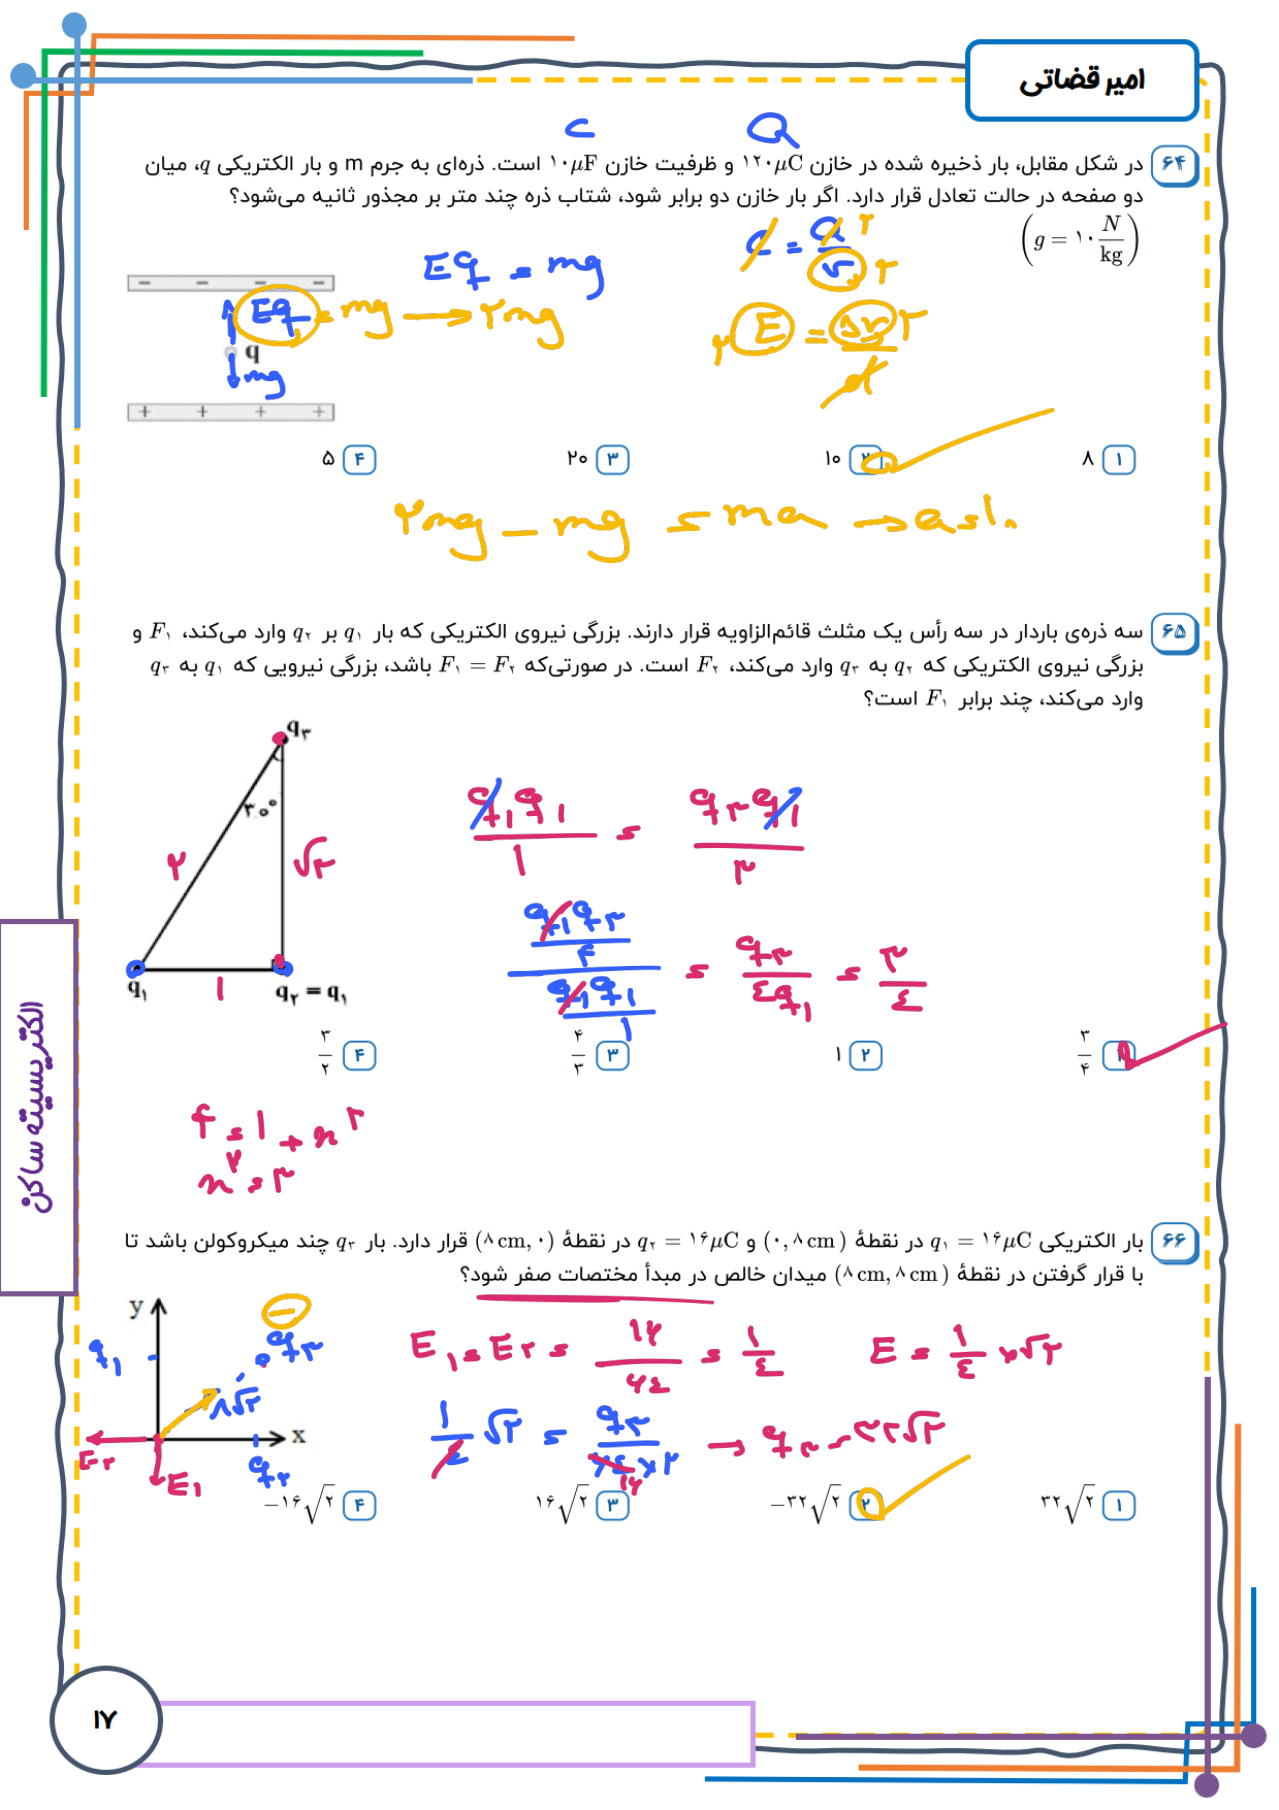 امیر قضاتی
C Q
۶۴ در شکل مقابل، بار ذخیره شده در خازن ۱۲۰μC و ظرفیت خازن ۱۰μF است. ذره‌ای به جرم m و بار الکتریکی q، میان
دو صفحه در حالت تعادل قرار دارد. اگر بار خازن دو برابر شود، شتاب ذره چند متر بر مجذور ثانیه می‌شود؟
(g = ۱۰ N/kg)
C = Q ۲ / v ۲
Eq = mg
− − − −
Eq = mg → ۲mg
۲ E = Δv ۲ / d
q
mg
+ + + +
۱ ۸
۲ ۱۰
۳ ۲۰
۴ ۵
۲mg − mg = ma → a = ۱۰
۶۵ سه ذره‌ی باردار در سه رأس یک مثلث قائم‌الزاویه قرار دارند. بزرگی نیروی الکتریکی که بار q۱ بر q۲ وارد می‌کند، F۱ و
بزرگی نیروی الکتریکی که q۲ به q۳ وارد می‌کند، F۲ است. در صورتی‌که F۱ = F۲ باشد، بزرگی نیرویی که q۱ به q۳
وارد می‌کند، چند برابر F۱ است؟
q۳
۳۰°
۲ √۳
q۱ ۱ q۲ = q۱
q۱q۱ / ۱ = q۳q۱ / ۳
q۱q۳ / ۴ / q۱q۱ / ۱ = q۳ / ٤q۱ = ۳ / ٤
۱ ۳/۴
۲ ۱
۳ ۴/۳
۴ ۳/۲
۴ = ۱ + x۲
x۲ = ۳
۶۶ بار الکتریکی q۱ = ۱۶μC در نقطهٔ (۰,۸cm) و q۲ = ۱۶μC در نقطهٔ (۸cm,۰) قرار دارد. بار q۳ چند میکروکولن باشد تا
با قرار گرفتن در نقطهٔ (۸cm,۸cm) میدان خالص در مبدأ مختصات صفر شود؟
y
−
q۱ q۳
۸√۲
x
E۲ E۱ q۲
E۱ = E۲ = ۱۶ / ۶٤ = ۱ / ٤ E = ۱ / ٤ × √۲
۱ / ٤ √۲ = q۳ / ۶٤×۲ ۱۶ → q۳ = ۳۲√۲
۱ ۳۲√۲
۲ −۳۲√۲
۳ ۱۶√۲
۴ −۱۶√۲
الکتریسیته ساکن
۱۷